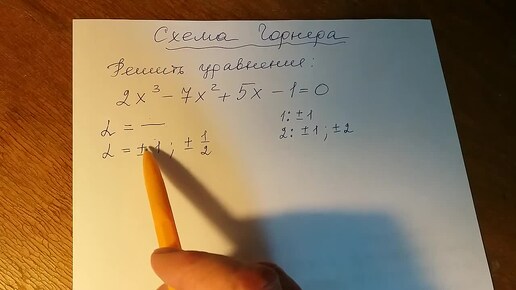 Схема Горнера
Решить уравнения:
2x³ − 7x² + 5x − 1 = 0
α = —
1: ±1
α = ±1; ± 1/2
2: ±1; ±2